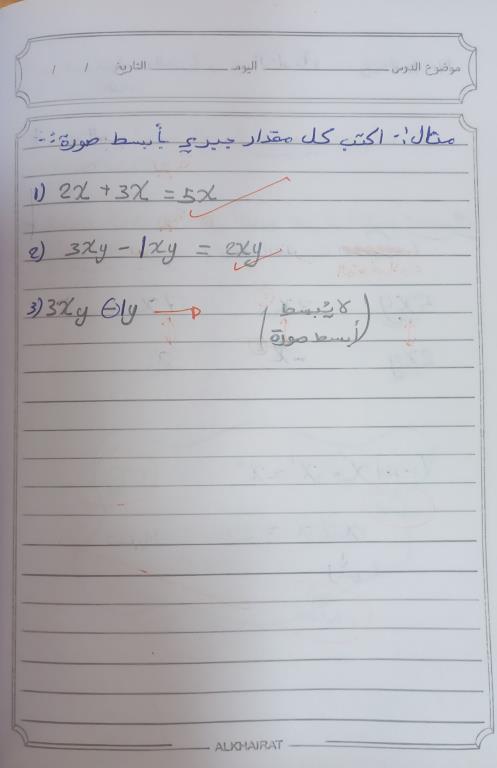 موضوع الدرس اليوم التاريخ / /
مثال:- اكتب كل مقدار جبري بأبسط صورة:-
1) 2x + 3x = 5x
2) 3xy - 1xy = 2xy
3) 3xy - 1y → (لا يُبسط
أبسط صورة)
ALKHAIRAT